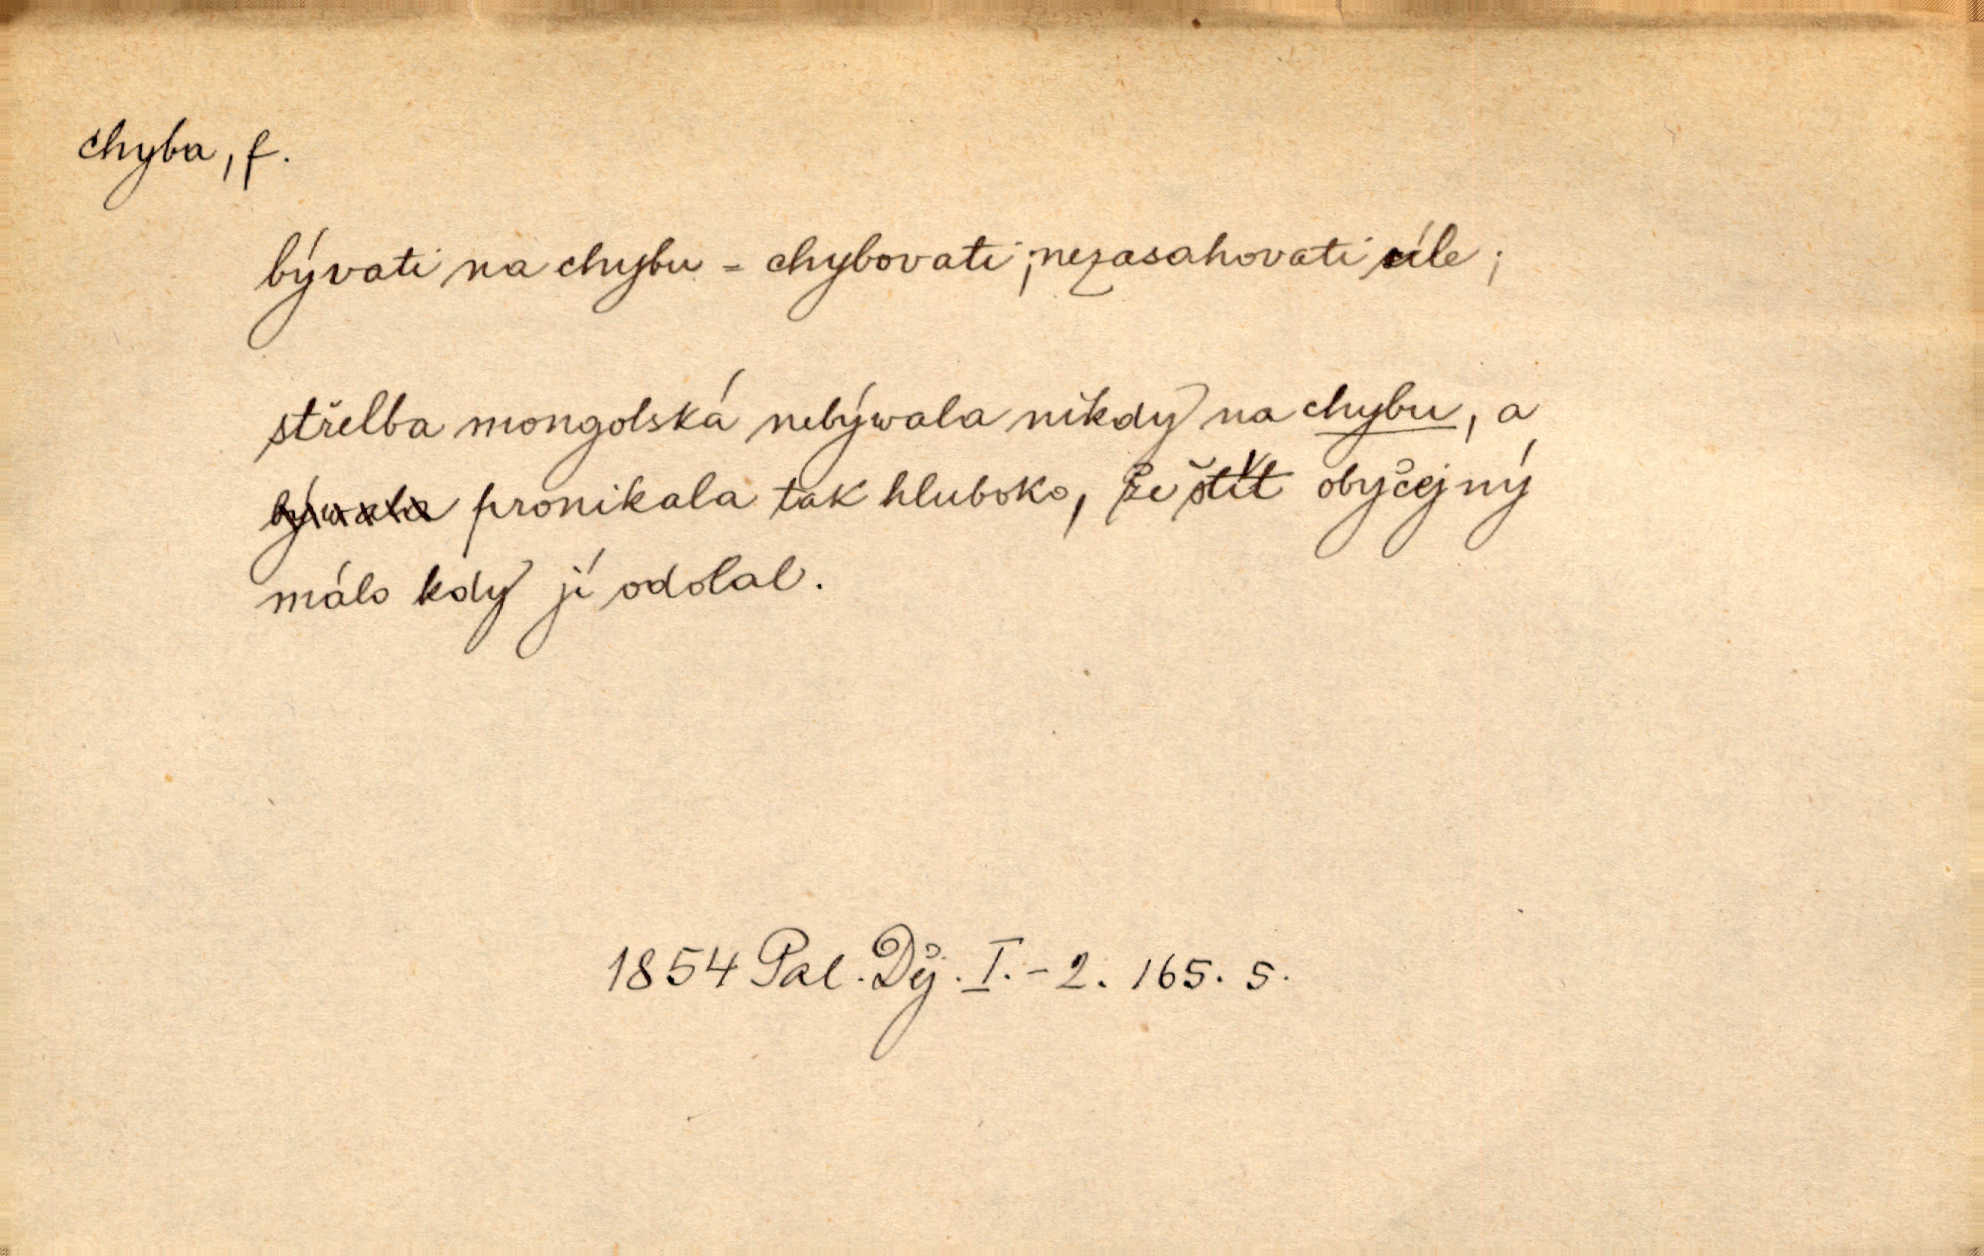 chyba, f.
bývati na chybu = chybovati; nezasahovati cíle;
střelba mongolská nebýwala nikdy na chybu, a
býwala pronikala tak hluboko, že štít obyčejný
málo kdy jí odolal.
1854 Pal. Děj. I.-2. 165. s.